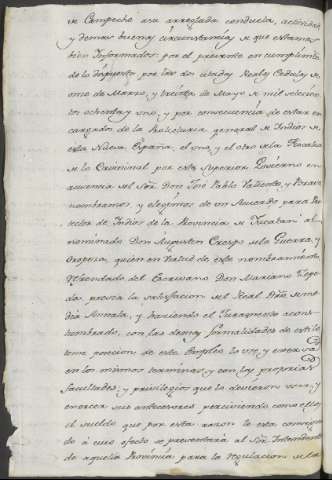 en Campeche a su arreglada conducta, actividad
y demas buenas circunstancias de que estamos
bien Informados: por el presente en cumplimiento
de lo dispuesto por las dos citadas Reales Cedulas de
once de Marzo, y treinta de Mayo de mil setecien
tos ochenta y uno, y por consecuencia de estar en
cargados de la Protecturia general de Indios de
esta Nueva España, el uno, y el otro de la Fiscalia
de lo Criminal por este Superior Govierno en
ausencia del Sôr. Don José Pablo Valiente, y Bravo
nombramos, y elegimos de un Acuerdo para Pro
tector de Indios de la Provincia de Yucatan al
nominado Don Augustin Crespo de la Guerra, y
Oropesa, quien en virtud de este nombramiento
refrendado del Escrivano Don Mariano Zepe
da previa la satisfacion del Real dro. de me
dia Annata, y haviendo el Juramento acos
tumbrado, con las demas formalidades de estilo
tome posecion de este Empleo, lo use, y exersa
en los mismos terminos, y con las proprias
facultades, y privilegios que lo devieron usar, y
exercer sus antecesores perciviendo como ellos
el sueldo que por esta razon le esta consigna
do á cuio efecto se presentará al Sôr. Intendente
de aquella Provincia para la regulacion de la